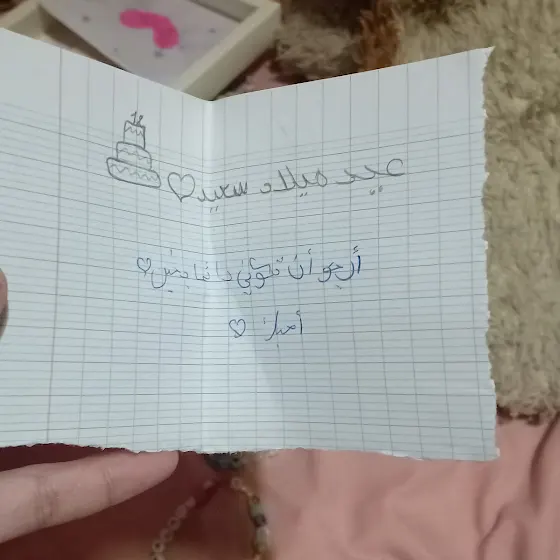 عيد ميلاد سعيد♡
أرجو أن تكوني دائما بخير♡
أحبك ♡